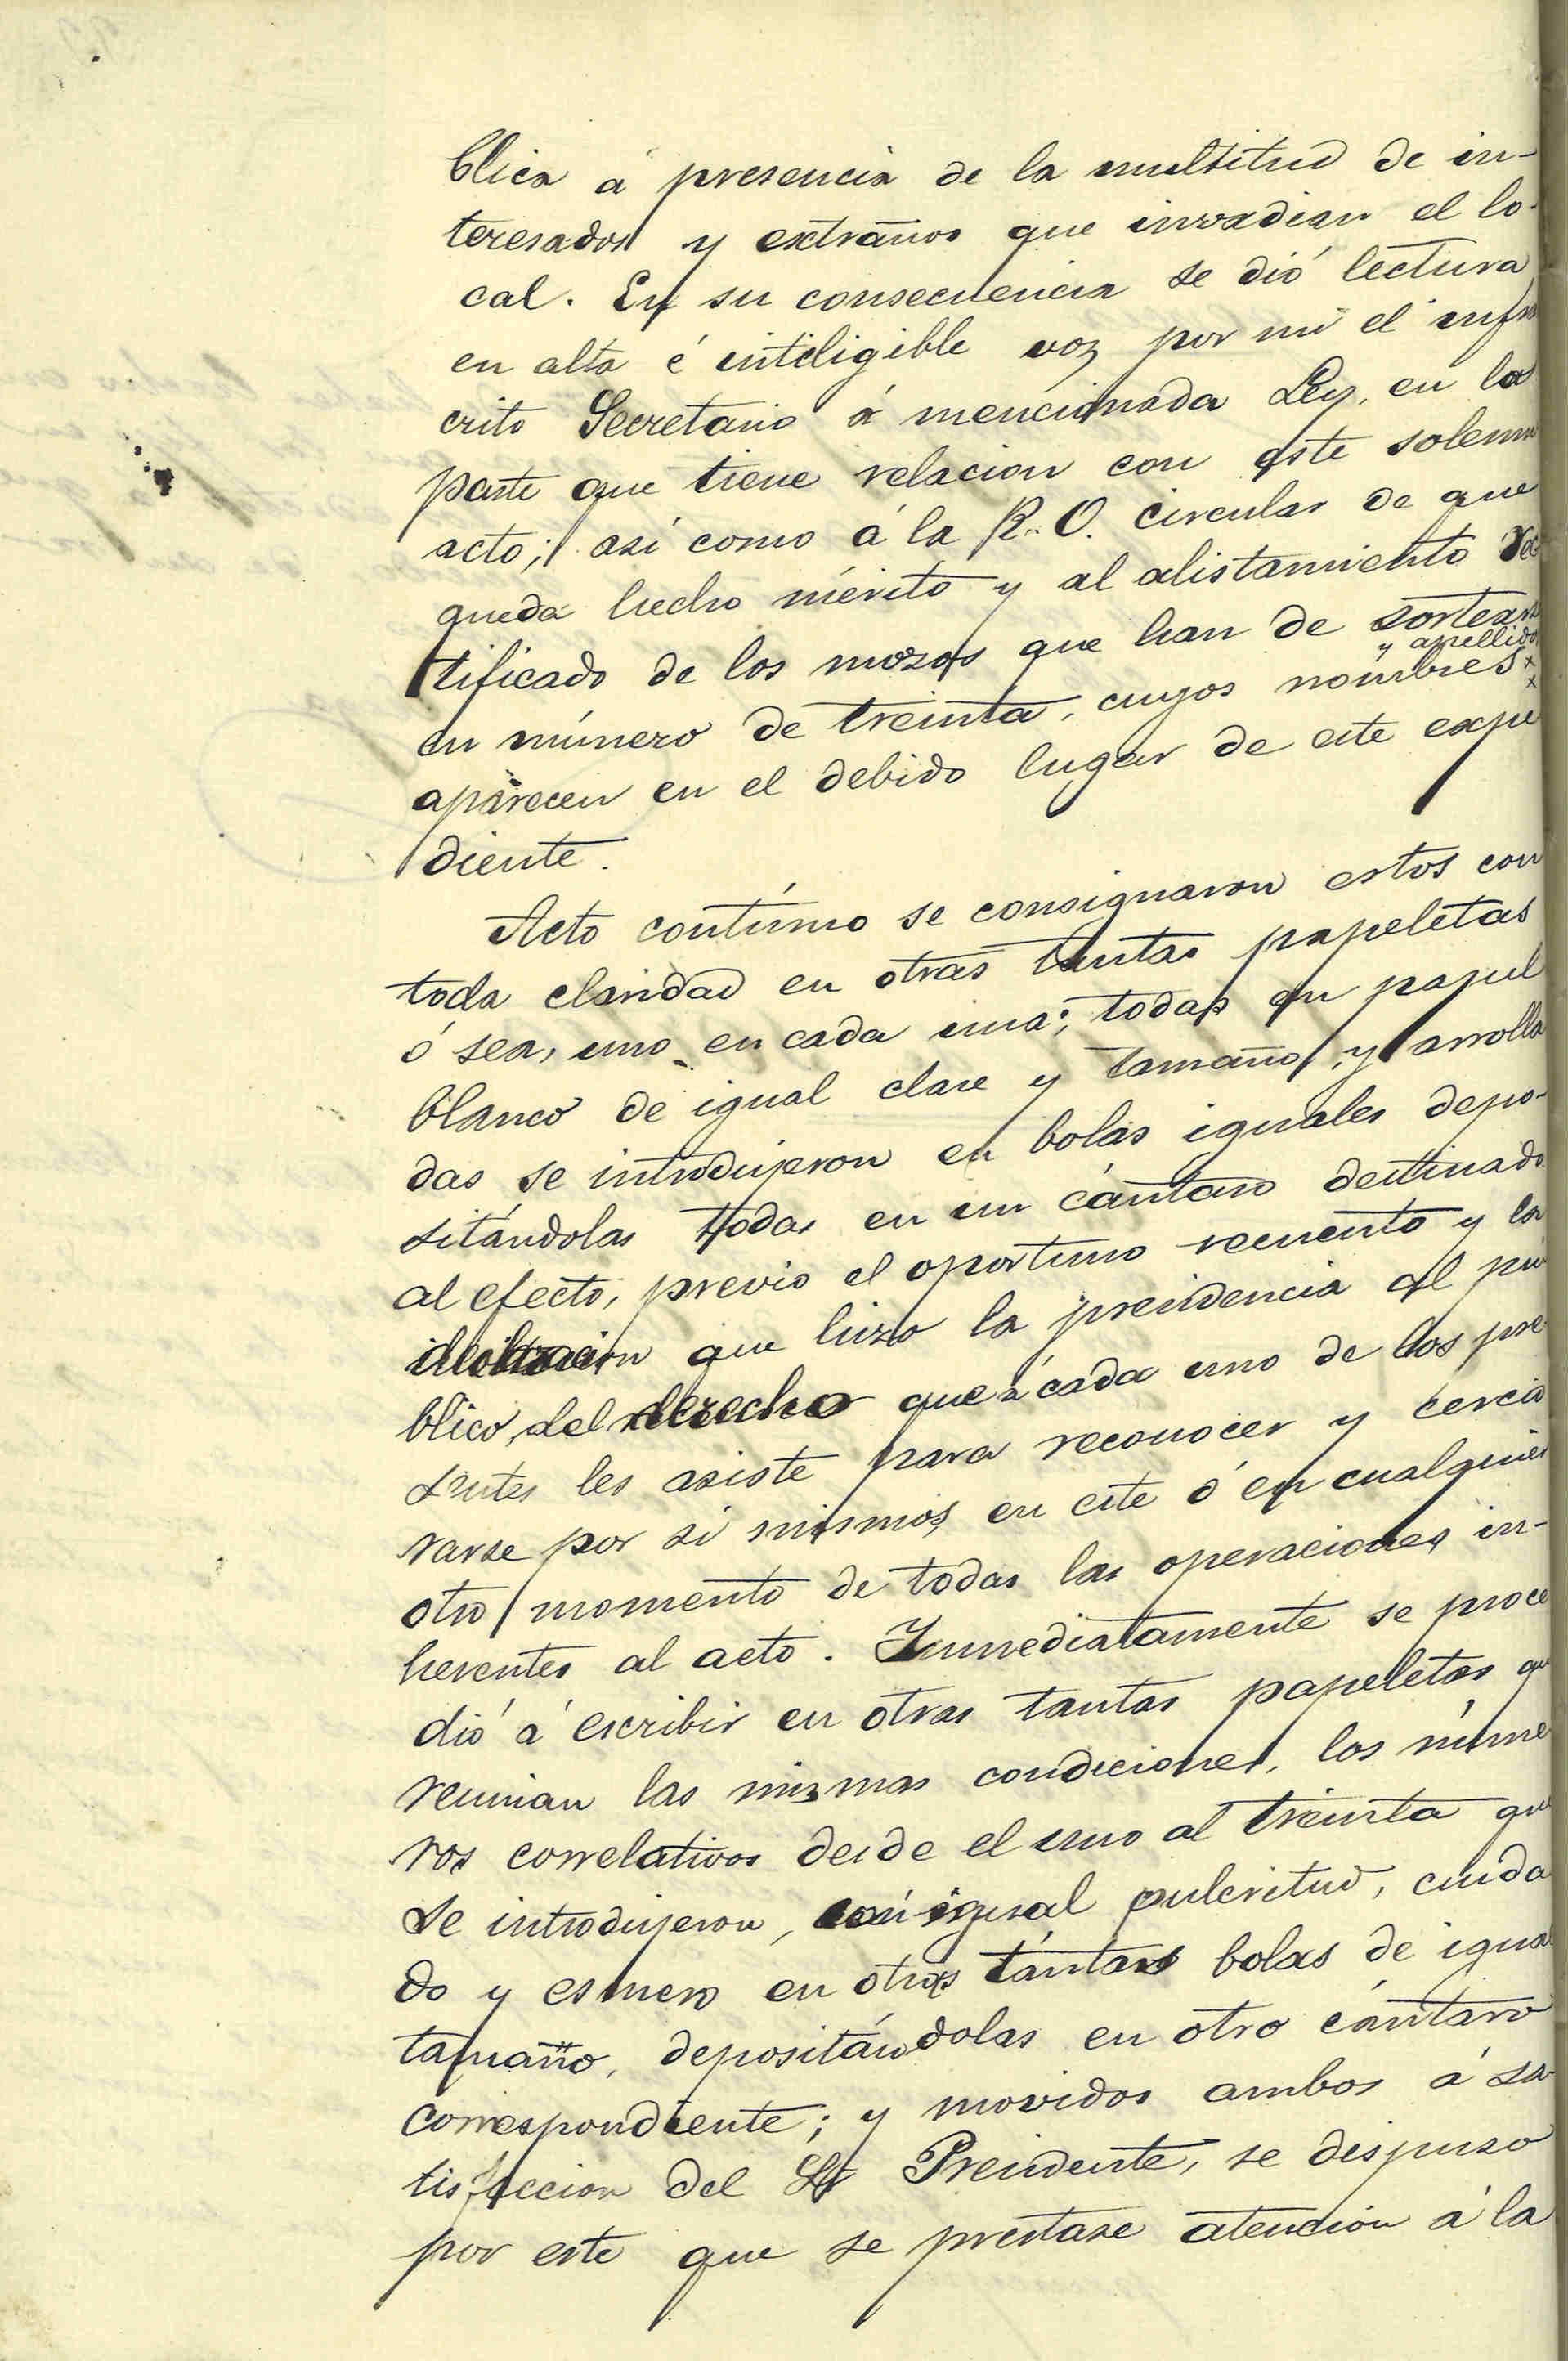 blica á presencia de la multitud de in-
teresados y extraños que invadian el lo-
cal. En su consecuencia se dió lectura
en alta é inteligible voz por mi el infras
crito Secretario á mencionada Ley, en la
parte que tiene relacion con este solemne
acto; así como á la R. O. circular de que
queda hecho mérito y al alistamiento rec
tificado de los mozos que han de sortearse
y apellidos
en número de treinta, cuyos nombres
aparecen en el debido lugar de este expe
diente.
Acto contínuo se consignaron estos con
toda claridad en otras tantas papeletas
ó sea, uno en cada una; todas en papel
blanco de igual clase y tamaño, y arrolla
das se introdujeron en bolas iguales depo-
sitándolas todas en un cántaro destinado
al efecto, previo el oportuno recuento y la
que hizo la presidencia al pú
blico, del derecho que á cada uno de los pre
sentes les asiste para reconocer y cercio
rarse por si mismos, en este ó en cualquier
otro momento de todas las operaciones in-
herentes al acto. Inmediatamente se proce
dió á escribir en otras tantas papeletas que
reunian las mismas condiciones, los núme
ros correlativos desde el uno al treinta que
se introdujeron, con igual pulcritud, cuida
do y esmero en otras tántas bolas de igual
tamaño, depositándolas en otro cántaro
correspondiente; y movidos ambos á sa-
tisfaccion del Sr Presidente, se dispuso
por este que se prestase atencion á la